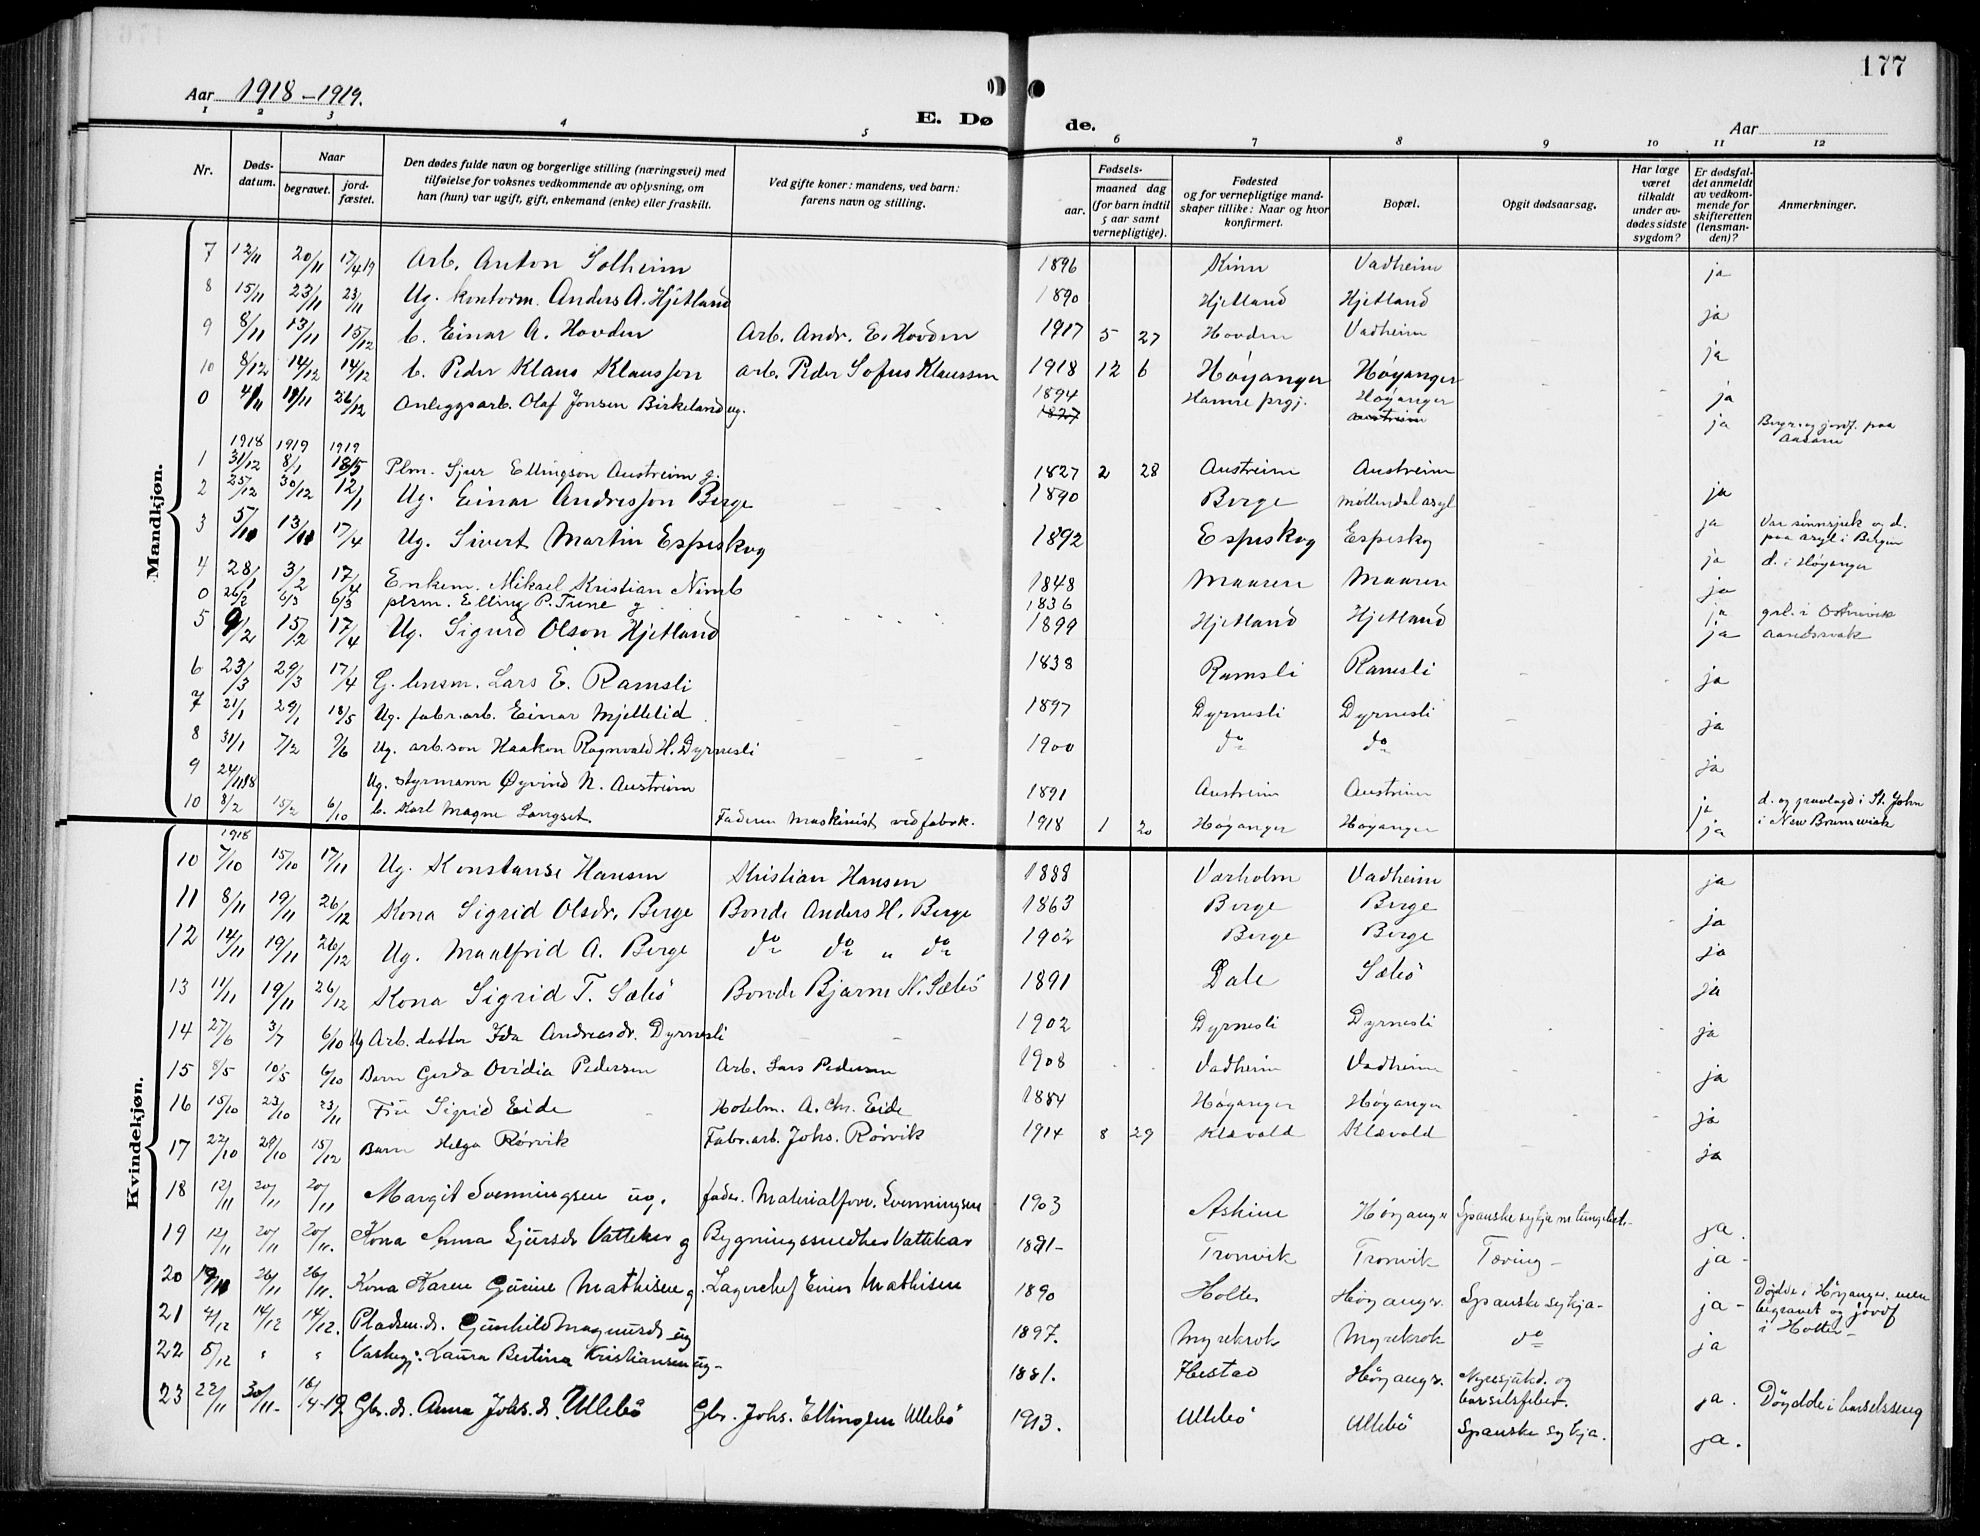 177
Aar 1918-1919.
E. Døde.
Aar
1 2 3 4 5 6 7 8 9 10 11 12
Nr. | Døds-datum. | Naar begravet. | jord-fæstet. | Den dødes fulde navn og borgerlige stilling (næringsvei) med tilføielse for voksnes vedkommende av oplysning, om han (hun) var ugift, gift, enkemand (enke) eller fraskilt. | Ved gifte koner: mandens, ved barn: farens navn og stilling. | Fødsels- aar. | maaned dag (for barn indtil 5 aar samt vernepligtige). | Fødested og for vernepligtige mand-skaper tillike: Naar og hvor konfirmert. | Bopæl. | Opgit dødsaarsag. | Har læge været tilkaldt under av-dødes sidste sygdom? | Er dødsfal-det anmeldt av vedkom-mende for skifteretten (lensman-den)? | Anmerkninger.
Mandkjøn.
7 12/11 20/11 17/4 19 Arb. Anton Solheim 1896 Kinn Vadheim ja
8 15/11 23/11 23/11 Ug. kontorm. Anders A. Hjetland 1890 Hjetland Hjetland ja
9 8/11 13/11 15/12 b. Einar A. Hovden Arb. Andr. E. Hovden 1917 5 27 Hovden Vadheim ja
10 8/12 14/12 14/12 b. Peder Klaus Klausson arb. Peder Sofus Klaussen 1918 12 6 Høyanger Høyanger ja
0 4/11 11/11 26/12 Anleggsarb. Olaf Jonsen Birkeland ug. 1894 1827 Hamre prgj. Høyanger Austreim ja Begr. og jordf. paa Aasane
1918 1919 1919
1 31/12 8/1 18/5 Plm. Sjur Ellingson Austreim g. 1827 2 28 Austreim Austreim ja
2 25/12 30/12 12/1 Ug. Einar Andresson Berge 1890 Berge Møllendal asyl ja Var sinnsjuk og d. paa asyl i Bergen
3 5/10 13/10 17/4 Ug. Sivert Martin Espeskog 1892 Espeskog Espeskog ja d. i Høyanger
4 28/1 3/2 17/4 Enkem. Mikael Kristian Nimb 1848 Maaren Maaren ja
0 26/2 6/3 6/3 plsm. Elling P. Trene g 1836 ja
5 9/2 15/2 17/4 Ug. Sigurd Olson Hjetland 1899 Hjetland Hjetland ja aandssvak
6 23/3 29/3 17/4 G. lensm. Lars E. Ramsli 1838 Ramsli Ramsli ja
7 21/1 29/1 18/5 Ug. fabr.arb. Einar Mjellelid 1897 Dyrnesli Dyrnesli ja
8 31/1 7/2 9/6 Ug. arb.son Haakon Ragnvald H. Dyrnesli 1900 do do ja
9 24/11 18 Ug. styrmann Øyvind N. Austreim 1891 Austreim Austreim ja d. og gravlagd i St. John i New Brunswick
10 8/2 15/2 6/10 b. Karl Magne Langset Faderen Maskinist ved fabrk. 1918 1 20 Høyanger Høyanger ja
Kvindekjøn.
1918
10 7/10 15/10 17/11 Ug. Konstanse Hansen Kristian Hansen 1888 Værholm Vadheim ja
11 8/11 19/11 26/12 Kona Sigrid Olsdr. Berge Bonde Anders H. Berge 1863 Berge Berge ja
12 14/11 19/11 26/12 Ug. Maalfrid A. Berge do do " do 1902 Berge Berge ja
13 11/11 19/11 26/12 Kona Sigrid T. Sæbö Bonde Bjarne N. Sæbö 1891 Dale Sæbö ja
14 27/6 3/7 6/10 Ug Arb. datter Ida Andreasdr. Dyrnesli 1902 Dyrnesli Dyrnesli ja
15 8/5 10/5 6/10 Barn Gerda Ovidia Pedersen Arb. Lars Pedersen 1908 Vadheim Vadheim ja
16 15/10 23/10 23/11 Frü Sigrid Eide Hotelm. A. Chr. Eide 1884 Høyanger Høyanger ja
17 22/10 29/10 15/12 Barn Helga Rörvik Fabr.arb. Johs. Rörvik 1914 8 29 Klævold Klævold ja
18 12/11 20/11 20/11 Margit Svenningsen ug. fader. Materialforv. Svenningsen 1903 Askim Høyangr Spanske sykja m lungebet. ja.
19 12/11 20/11 20/11. Kona Anna Sjursdr Vattekar g Bygningssnedker Vattekar 1891- Tronvik Tronvik Tæring - ja -
20 19/11 26/11 26/11. Kona Karen Gurine Mathisen g. Lagerchef Einar Mathisen 1890 Holter Høyangr. Spanske sykja- ja - Døydde i Høyanger, men begravet og jordf i Holter-
21 4/12 14/12 14/12. Pladsm.dr. Gunhild Magnusdr ug 1897. Myrekrok Myrekrok do ja
22 5/12 " " Vaskepi. Laura Bertina Kristiansen ug- 1881. Hestad Høyangr. Nyresjukd. og barselsfeber. ja. Döydde i barselsseng
23 22/11 30/11- 16/4-19 Gbr.dr. Anna Johs.dr. Ullebö Gbr. Johs. Ellingsen Ullebö 1913. Ullebö Ullebö Spanske sykja. ja.